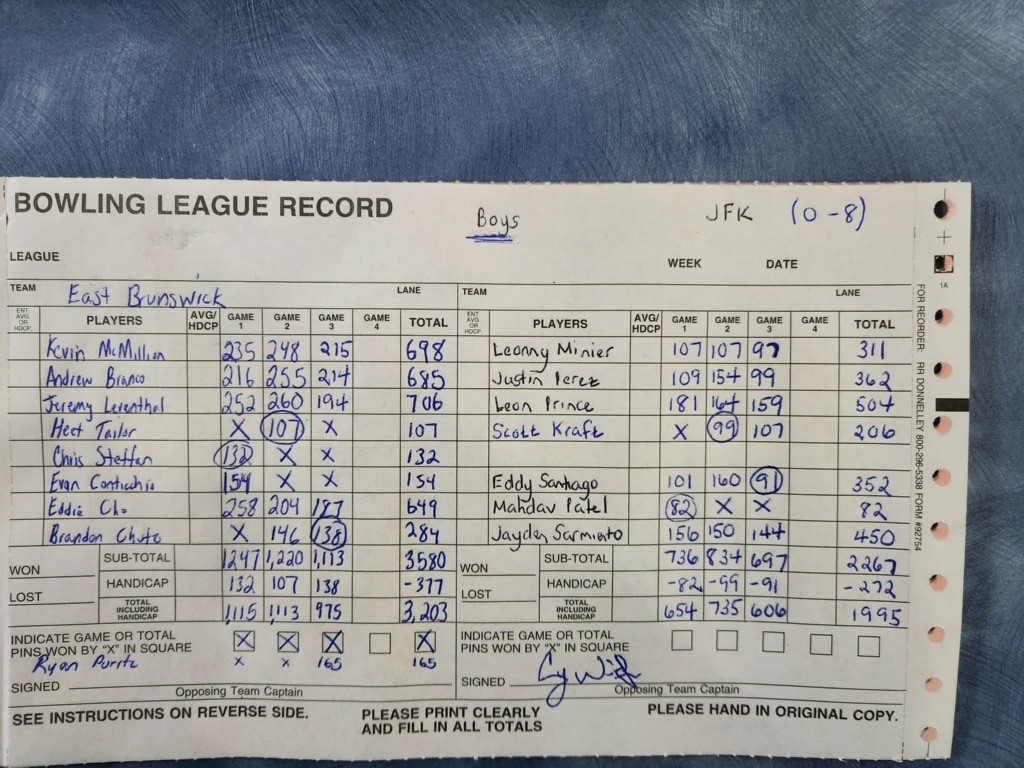 BOWLING LEAGUE RECORD Boys JFK (0-8)
LEAGUE WEEK DATE
TEAM East Brunswick LANE TEAM LANE
ENT. AVG. OR HDCP. PLAYERS AVG/HDCP GAME 1 GAME 2 GAME 3 GAME 4 TOTAL ENT. AVG. OR HDCP. PLAYERS AVG/HDCP GAME 1 GAME 2 GAME 3 GAME 4 TOTAL
Kevin McMillian 235 248 215 698 Leonny Minier 107 107 97 311
Andrew Branco 216 255 214 685 Justin Perez 109 154 99 362
Jeremy Leventhal 252 260 194 706 Leon Prince 181 164 159 504
Heet Tailor X 107 X 107 Scott Kraft X 99 107 206
Chris Steffan 132 X X 132
Evan 154 X X 154 Eddy Santiago 101 160 91 352
Eddie Cho 258 204 187 649 Mahdav Patel 82 X X 82
Brandon X 146 138 284 Jayden Sarmiento 156 150 144 450
WON SUB-TOTAL 1247 1,220 1,113 3580 WON SUB-TOTAL 736 834 697 2267
LOST HANDICAP 132 107 138 -377 LOST HANDICAP -82 -99 -91 -272
TOTAL INCLUDING HANDICAP 1,115 1,113 975 3,203 TOTAL INCLUDING HANDICAP 654 735 606 1995
INDICATE GAME OR TOTAL X X X X INDICATE GAME OR TOTAL
PINS WON BY "X" IN SQUARE PINS WON BY "X" IN SQUARE
Ryan Puritz x x 165 165
SIGNED Opposing Team Captain SIGNED Opposing Team Captain
SEE INSTRUCTIONS ON REVERSE SIDE. PLEASE PRINT CLEARLY PLEASE HAND IN ORIGINAL COPY.
AND FILL IN ALL TOTALS
1A
FOR REORDER: RR DONNELLEY 800-296-5338 FORM #92754